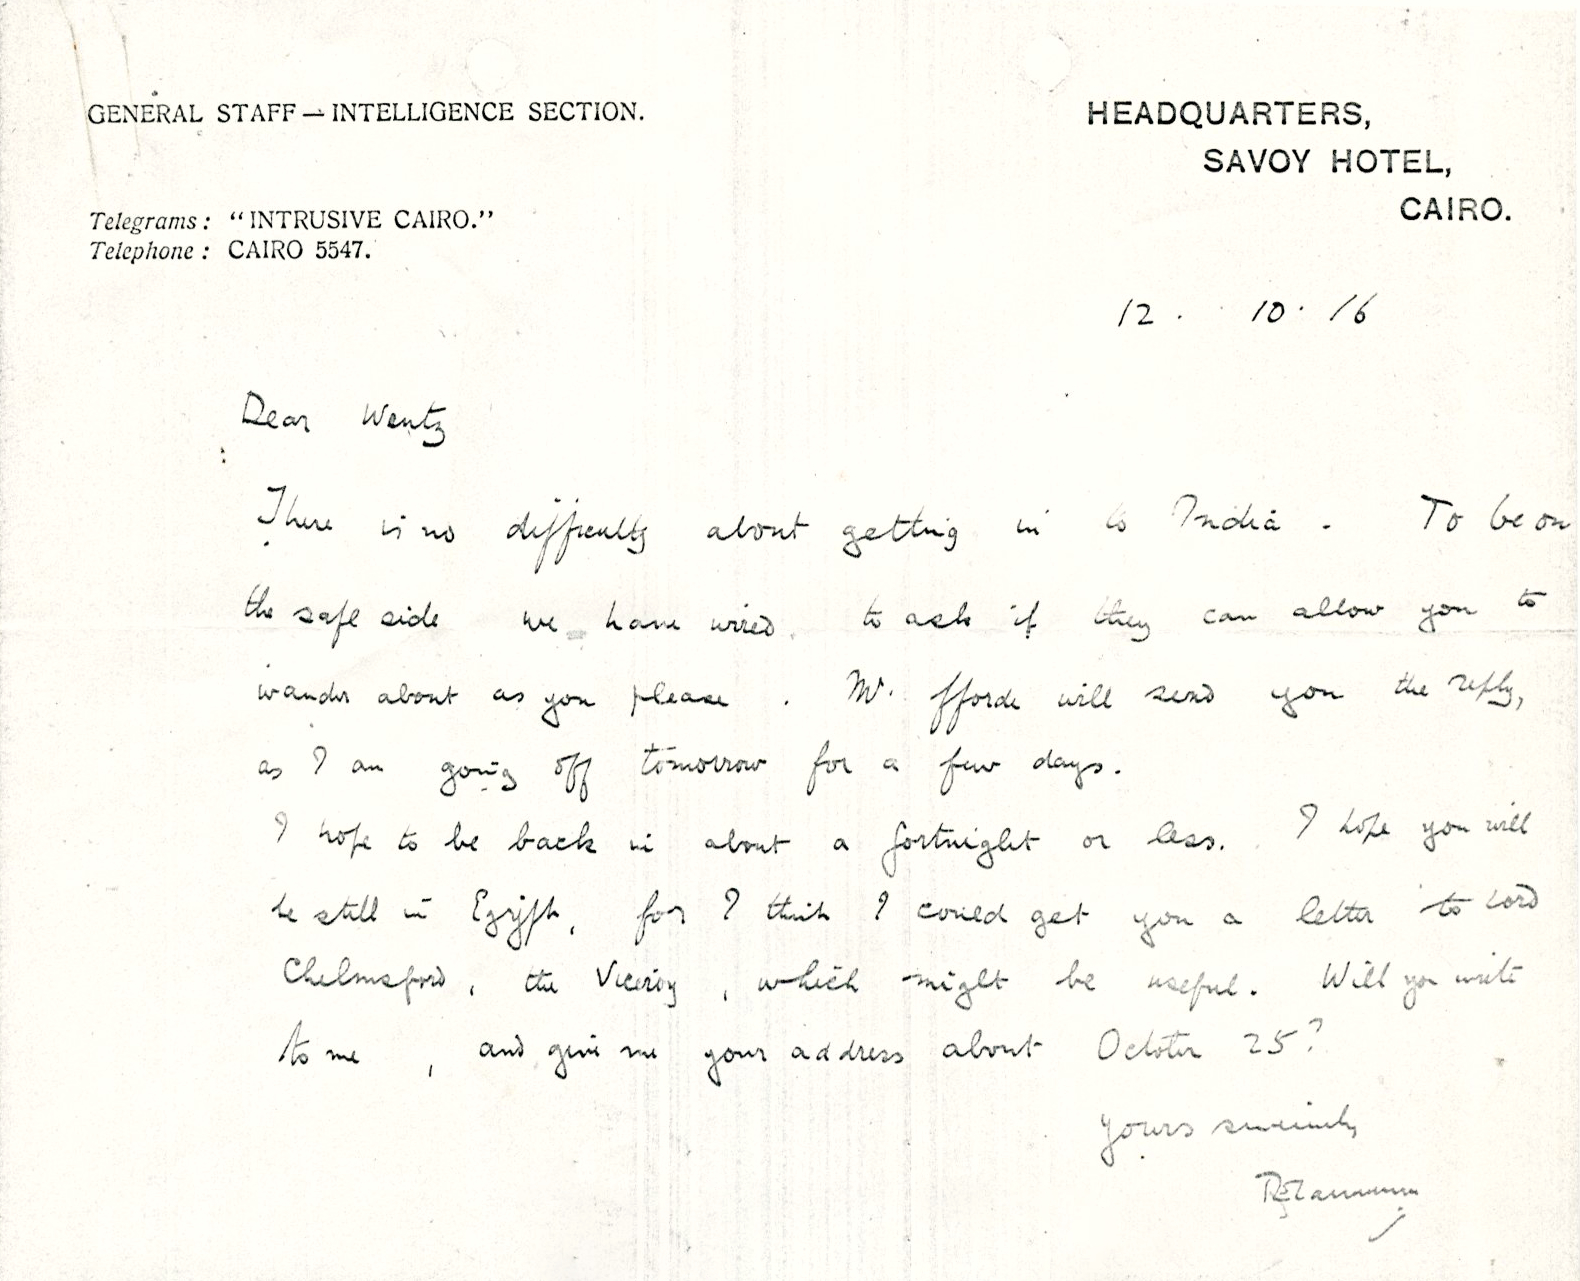 GENERAL STAFF — INTELLIGENCE SECTION.
HEADQUARTERS,
SAVOY HOTEL,
CAIRO.
Telegrams: "INTRUSIVE CAIRO."
Telephone: CAIRO 5547.
12 . 10 . 16
Dear Wentz
There is no difficulty about getting in to India . To be on
the safe side we have wired to ask if they can allow you to
wander about as you please . Mr. fforde will send you the reply,
as I am going off tomorrow for a few days.
I hope to be back in about a fortnight or less. I hope you will
be still in Egypt, for I think I could get you a letter to Lord
Chelmsford, the Viceroy, which might be useful. Will you write
to me , and give me your address about October 25?
Yours sincerely